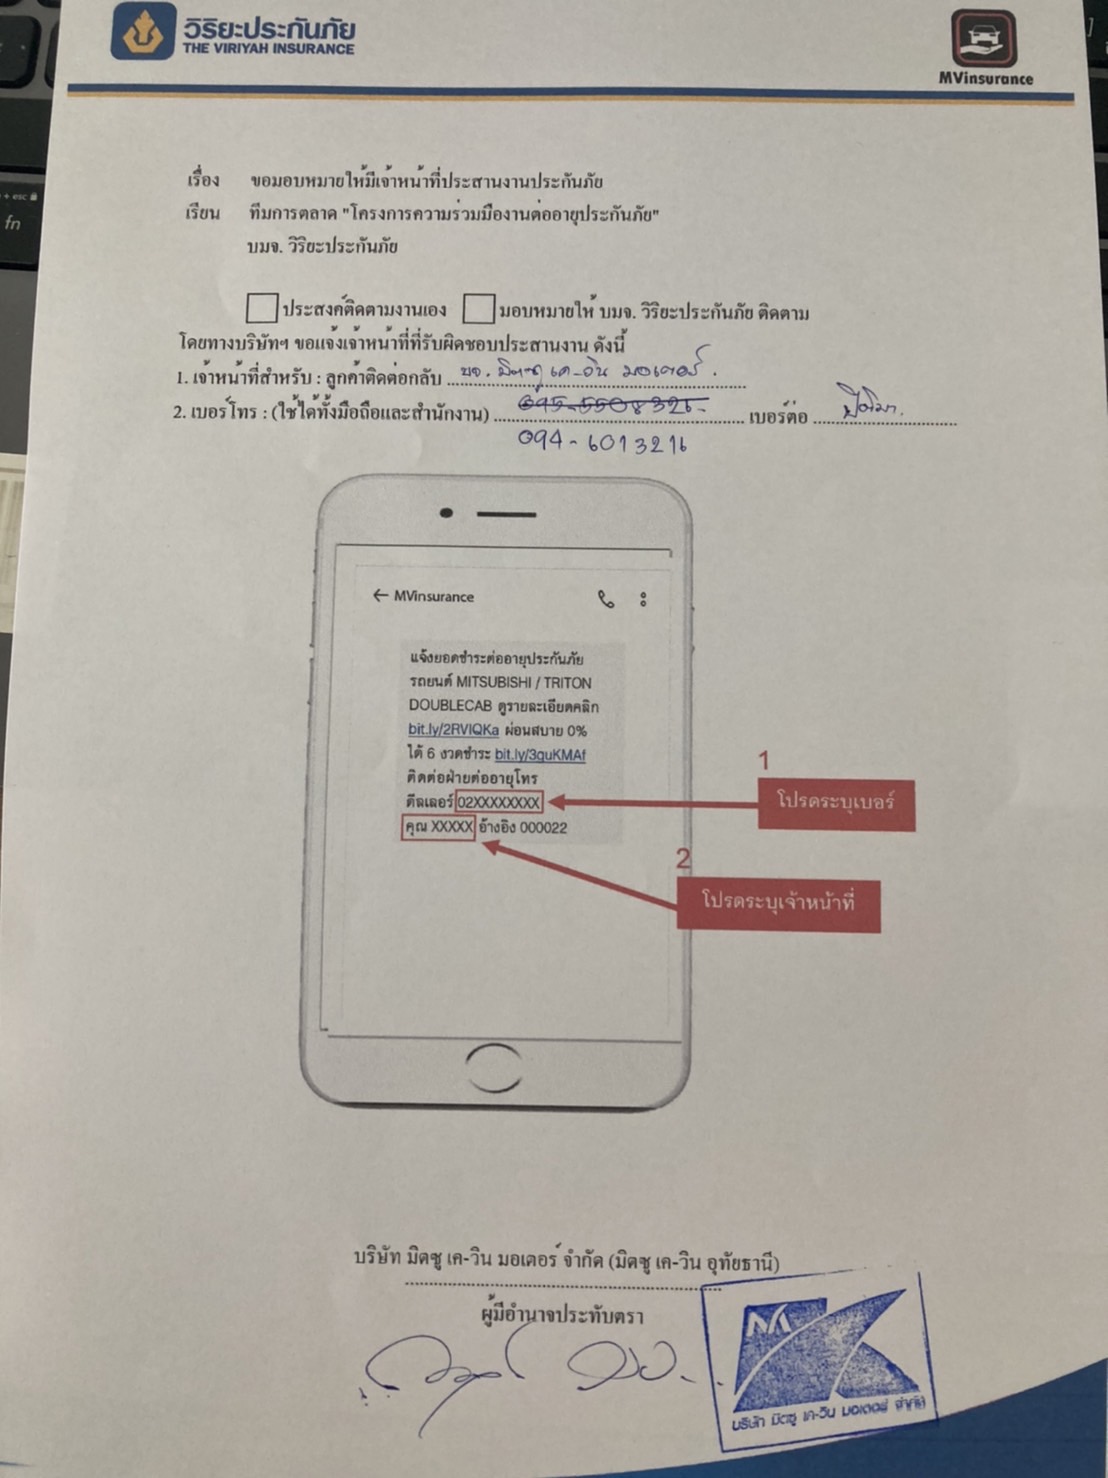 วิริยะประกันภัย
THE VIRIYAH INSURANCE
MVinsurance
+ esc
fn
เรื่อง ขอมอบหมายให้มีเจ้าหน้าที่ประสานงานประกันภัย
เรียน ทีมการตลาด "โครงการความร่วมมืองานต่ออายุประกันภัย"
บมจ. วิริยะประกันภัย
ประสงค์ติดตามงานเอง มอบหมายให้ บมจ. วิริยะประกันภัย ติดตาม
โดยทางบริษัทฯ ขอแจ้งเจ้าหน้าที่ที่รับผิดชอบประสานงาน ดังนี้
1. เจ้าหน้าที่สำหรับ : ลูกค้าติดต่อกลับ บจ. มิตซู เค-วิน มอเตอร์.
2. เบอร์โทร : (ใช้ได้ทั้งมือถือและสำนักงาน) 095-5508326- เบอร์ต่อ
094-6013216
← MVinsurance
แจ้งยอดชำระต่ออายุประกันภัย
รถยนต์ MITSUBISHI / TRITON
DOUBLECAB ดูรายละเอียดคลิก
bit.ly/2RVIQKa ผ่อนสบาย 0%
ได้ 6 งวดชำระ bit.ly/3guKMAf
ติดต่อฝ่ายต่ออายุโทร
ดีลเลอร์ 02XXXXXXXX
คุณ XXXXX อ้างอิง 000022
1
โปรดระบุเบอร์
2
โปรดระบุเจ้าหน้าที่
บริษัท มิตซู เค-วิน มอเตอร์ จำกัด (มิตซู เค-วิน อุทัยธานี)
ผู้มีอำนาจประทับตรา
บริษัท มิตซู เค-วิน มอเตอร์ จำกัด